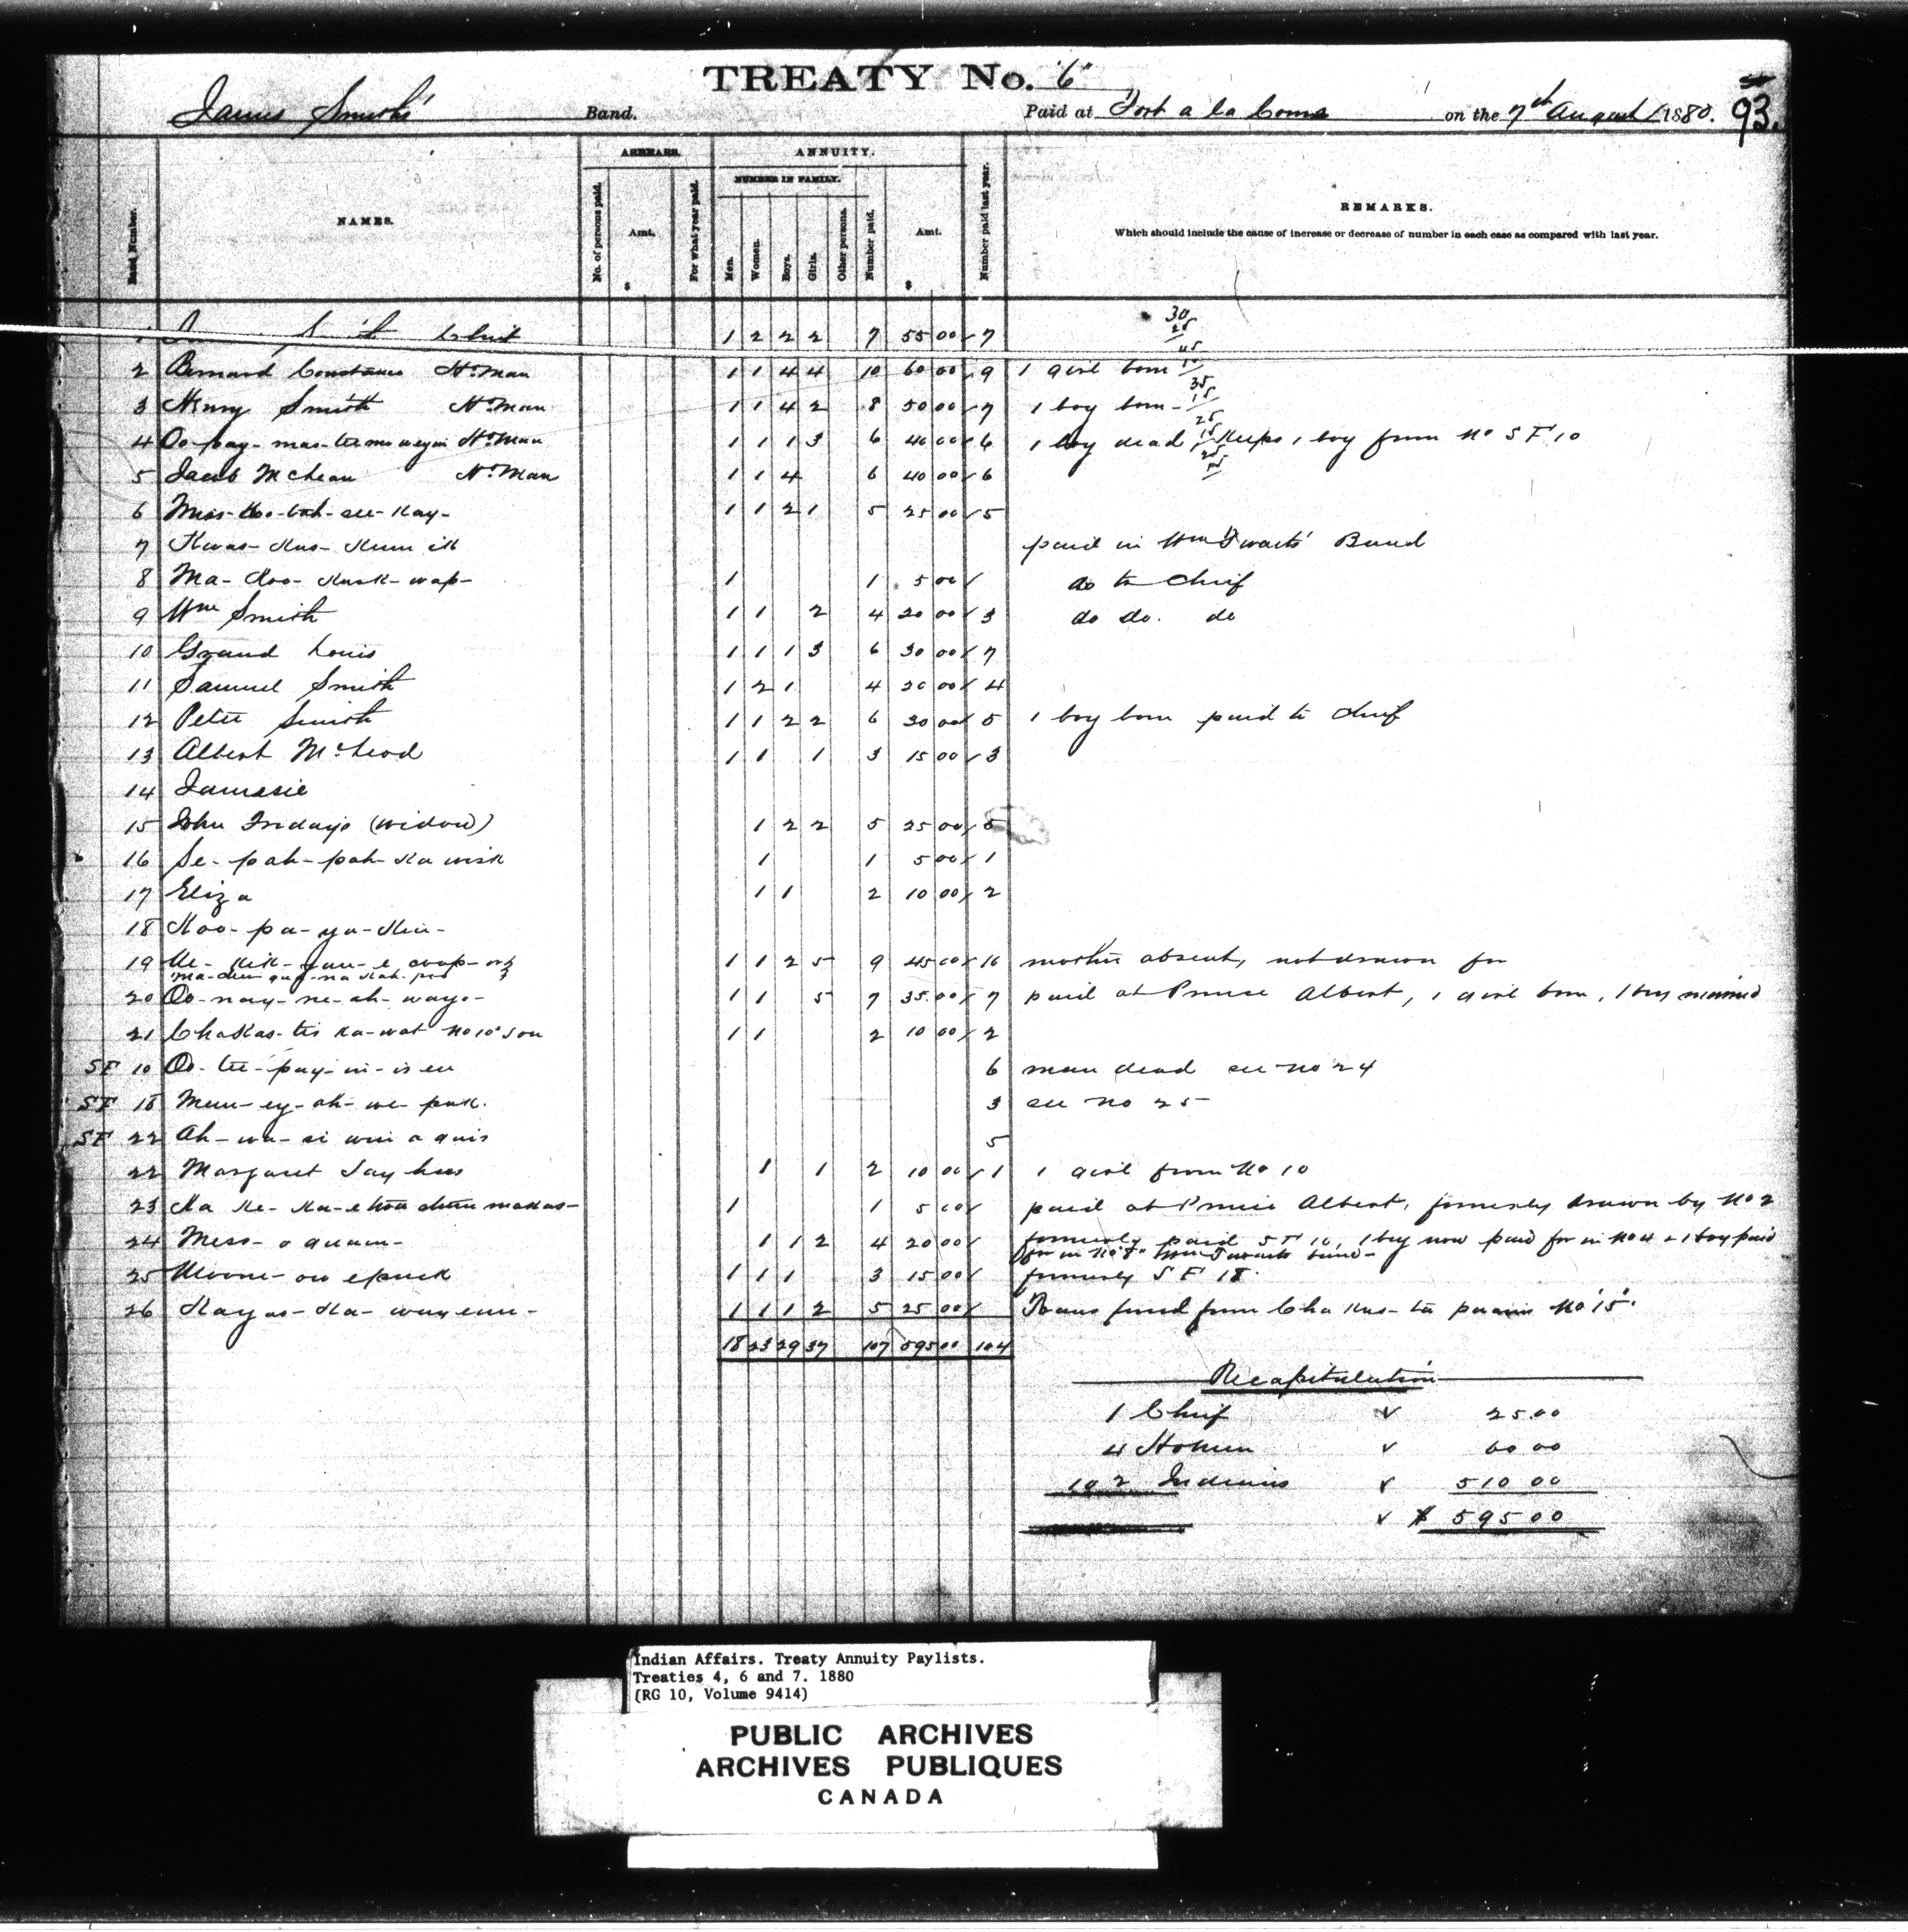 TREATY No. "6"
James Smith's Band. Paid at Fort a la Corne on the 7th August 1880. 93.
Band Number. NAMES. ARREARS. ANNUITY. Number paid last year. REMARKS.
No. of persons paid. Amt. $ For what year paid. NUMBER IN FAMILY. Men. Women. Boys. Girls. Other persons. Number paid. Amt. $
Which should include the cause of increase or decrease of number in each case as compared with last year.
1 Smith Chief 1 2 2 2 7 55 00 7
2 Bernard Constance Hd Man 1 1 4 4 10 60 00 9 1 girl born
3 Henry Smith Hd Man 1 1 4 2 8 50 00 7 1 boy born
4 Oo-pay- Hd Man 1 1 1 3 6 40 00 6 1 boy dead, Keeps 1 boy from No SF 10
5 Jacob McLean Hd Man 1 1 4 6 40 00 6
6 1 1 2 1 5 25 00 5
7 Kwas-Kus-Kum ik paid in Wm Twaits' Band
8 Ma-Koo-Kusk-wap- 1 1 5 00 do to chief
9 Wm Smith 1 1 2 4 20 00 3 do do. do
10 Grand Louis 1 1 1 3 6 30 00 7
11 Samuel Smith 1 2 1 4 20 00 4
12 Peter Smith 1 1 2 2 6 30 00 5 1 boy born paid to chief
13 Albert McLeod 1 1 1 3 15 00 3
14 Jamesie
15 John Fridays (widow) 1 2 2 5 25 00 5
16 Se-pah-pah-Ka wisk 1 1 5 00 1
17 Eliza 1 1 2 10 00 2
18 Koo-pa-ya-Kin-
19 1 1 2 5 9 45 00 10 mother absent, not drawn for
20 Oo-nay-ne-ah-wayo- 1 1 5 7 35.00 7 paid at Prince Albert, 1 girl born, 1 boy married
21 ChaKas-tis Ka-wat No 10s son 1 1 2 10 00 2
SF 10 Oo-tee-pay-in-is eu 6 man dead see No 24
SF 18 Mun-ey-ah-we-puk. 3 see No 25
SF 22 Ah-wa-si win a quis 5
22 Margaret Jay 1 1 2 10 00 1 1 girl from No 10
23 Ka Ke-Ka-e 1 1 5 00 paid at Prince Albert, formerly drawn by No 2
24 Mess-o quam- 1 1 2 4 20 00 formerly paid SF 10, 1 boy now paid for in No 4 & 1 boy paid
for in No "8" Wm Twaits band-
25 Moone-ow epuck 1 1 1 3 15 00 formerly SF 18.
26 Kay as-Ka- 1 1 1 2 5 25 00 Transferred from Cha Kas-ta No "15".
18 23 29 37 107 595 00 104
Recapitulation
1 Chief 25.00
4 Hdmen 60 00
102 Indians 510 00
$ 595 00
Indian Affairs. Treaty Annuity Paylists.
Treaties 4, 6 and 7. 1880
(RG 10, Volume 9414)
PUBLIC ARCHIVES
ARCHIVES PUBLIQUES
CANADA